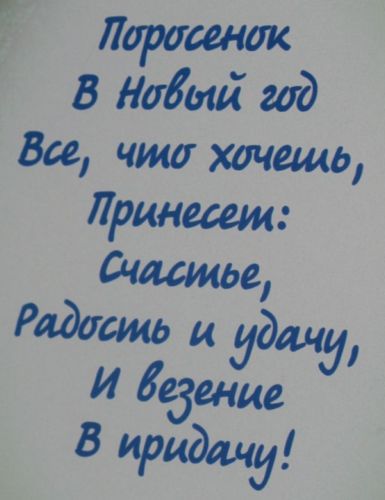 Поросенок
В Новый год
Все, что хочешь,
Принесет:
Счастье,
Радость и удачу,
И везение
В придачу!